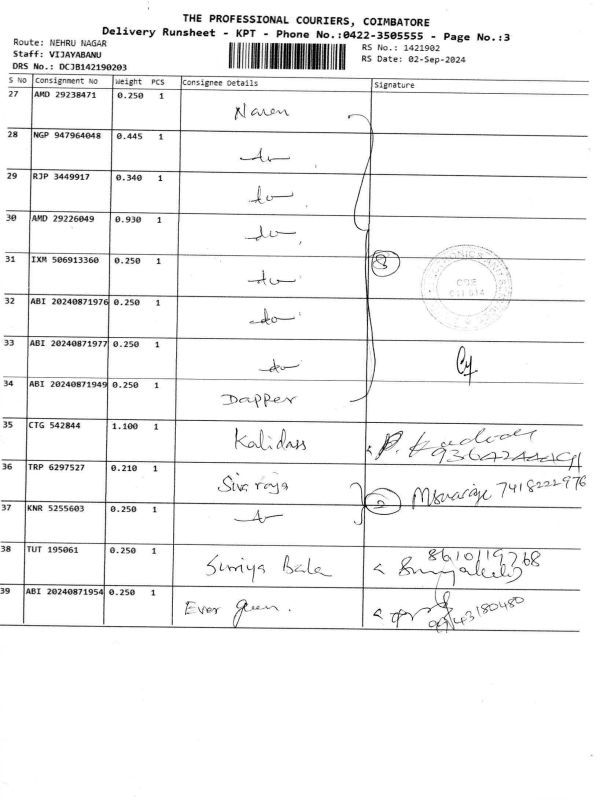 THE PROFESSIONAL COURIERS, COIMBATORE
Delivery Runsheet - KPT - Phone No.:0422-3505555 - Page No.:3
Route: NEHRU NAGAR
Staff: VIJAYABANU
DRS No.: DCJB142190203
RS No.: 1421902
RS Date: 02-Sep-2024
S No Consignment No Weight PCS Consignee Details Signature
27 AMD 29238471 0.250 1 Naren
28 NGP 947964048 0.445 1 do
29 RJP 3449917 0.340 1 do
30 AMD 29226049 0.930 1 do
31 IXM 506913360 0.250 1 do 8
32 ABI 20240871976 0.250 1 do
33 ABI 20240871977 0.250 1 do
34 ABI 20240871949 0.250 1 Dapper
35 CTG 542844 1.100 1 Kalidass P.
36 TRP 6297527 0.210 1 Sivaraja
37 KNR 5255603 0.250 1 do 2 7418222976
38 TUT 195061 0.250 1 Suriya Bala 8610119768
39 ABI 20240871954 0.250 1 Ever green.